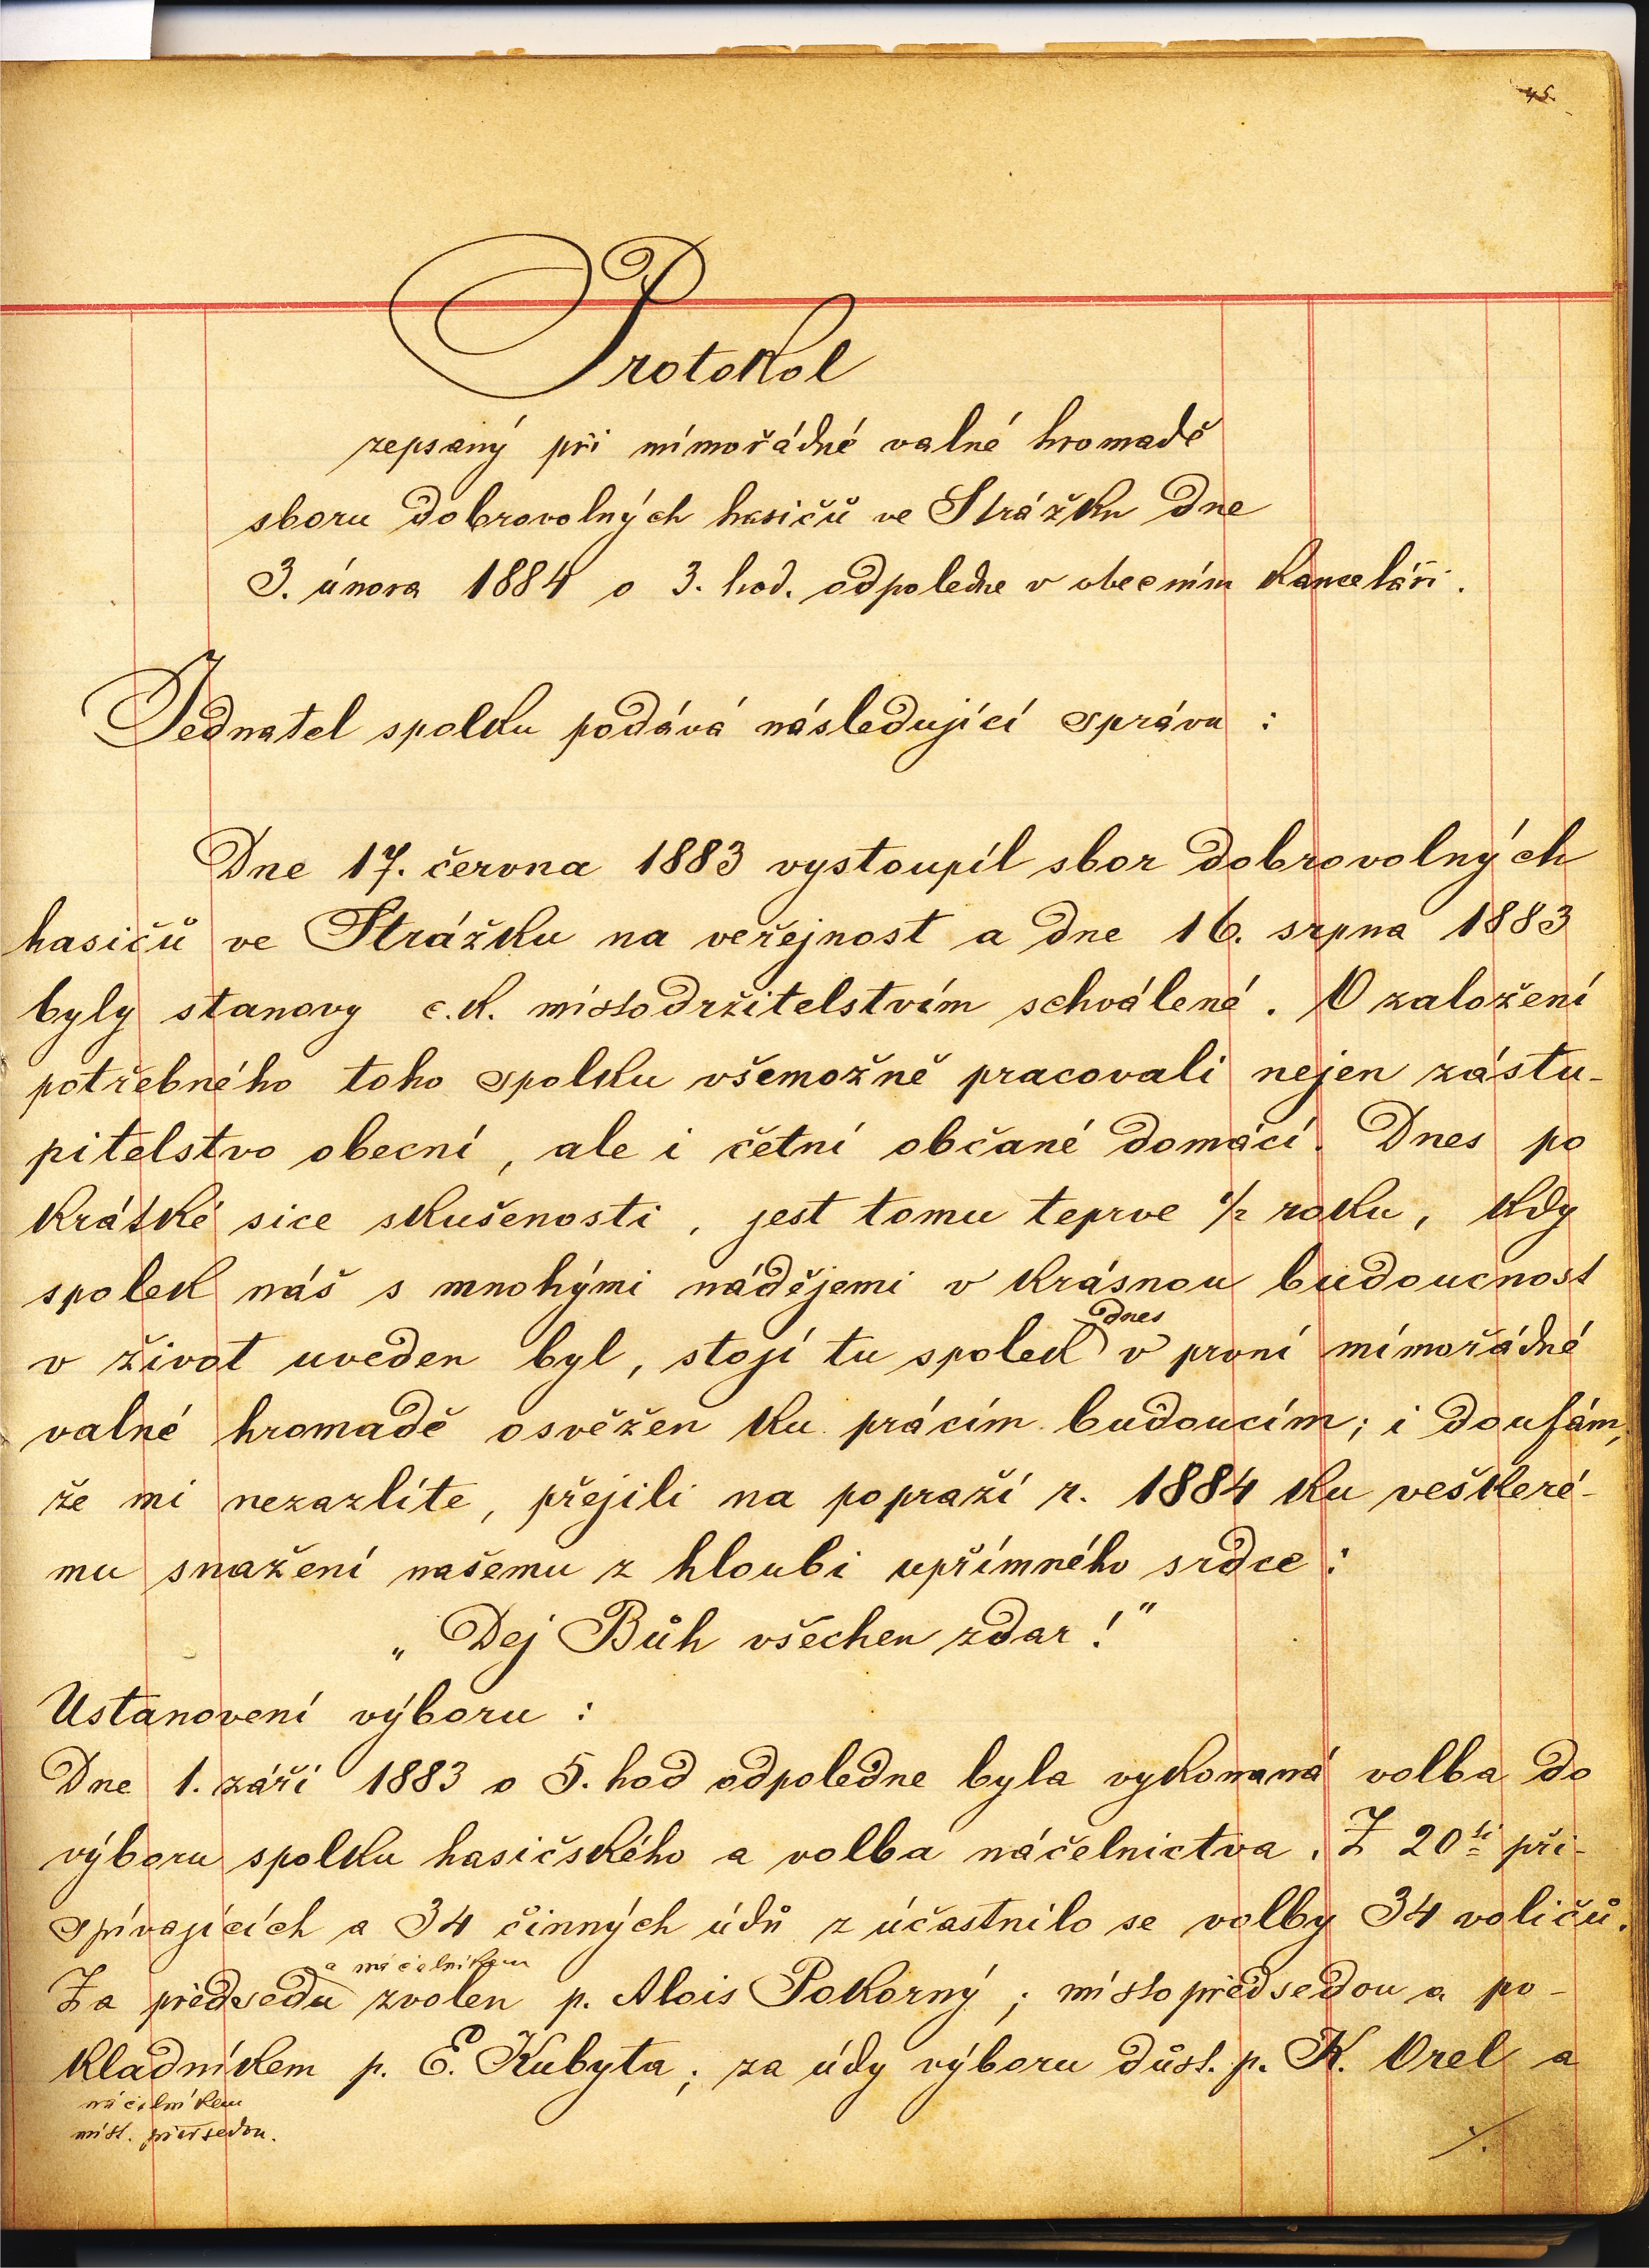 45.
Protokol
zepsaný při mímořádné valné hromadě
sboru dobrovolných hasičů ve Strážku dne
3. února 1884 o 3. hod. odpoledne v obecním kanceláři.
Jednatel spolku podává následující správu :
Dne 17. června 1883 vystoupil sbor dobrovolných
hasičů ve Strážku na veřejnost a dne 16. srpna 1883
byly stanovy c.k. místodržitelstvím schválené. O založení
potřebného toho spolku všemožně pracovali nejen zástu-
pitelstvo obecní, ale i četní občané domácí. Dnes po
krátké sice skušenosti, jest tomu teprve 1/2 roku, kdy
spolek náš s mnohými nádějemi v krásnou budoucnost
dnes
v život uveden byl, stojí tu spolek v první mímořádné
valné hromadě osvěžen ku prácím budoucím; i doufám,
že mi nezazlíte, přejili na popraží r. 1884 ku veškeré-
mu snažení našemu z hloubi upřímného srdce :
„Dej Bůh všechen zdar!"
Ustanovení výboru :
Dne 1. září 1883 o 5. hod odpoledne byla vykonaná volba do
výboru spolku hasičského a volba náčelnictva. Z 20ti při-
spívajících a 34 činných údů z účastnilo se volby 34 voličů.
a náčelníkem
Za předsedu zvolen p. Alois Pokorný ; místopředsedou a po-
kladníkem p. E. Kubyta ; za údy výboru důst. p. K. Orel a
náčelníkem
míst. předsedou.
./.